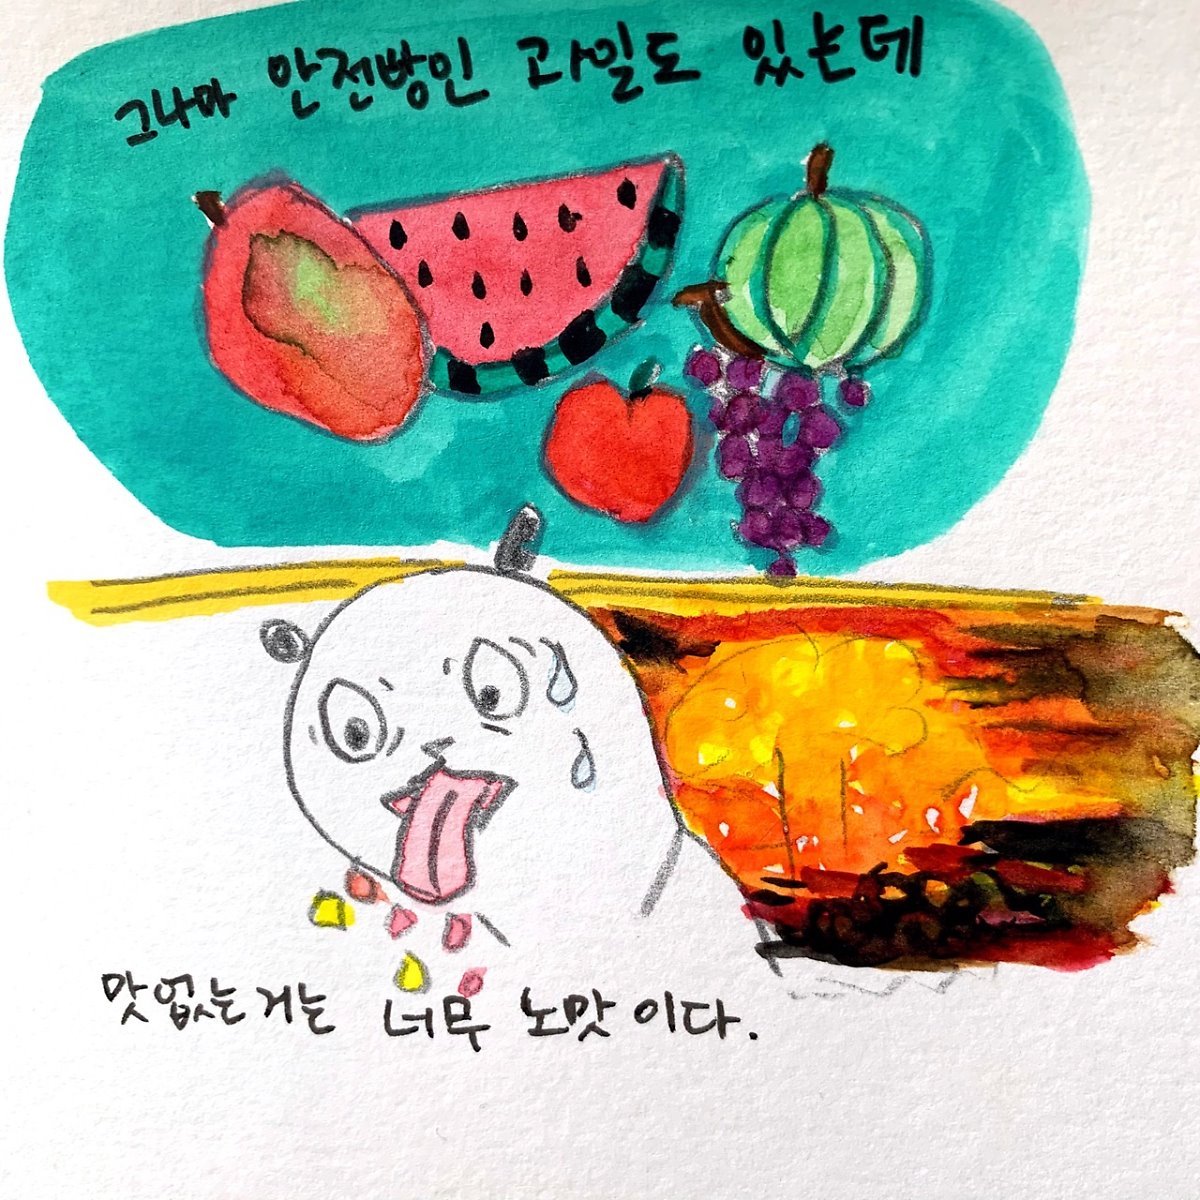 그나마 안전빵인 과일도 있는데
맛없는거는 너무 노맛이다.